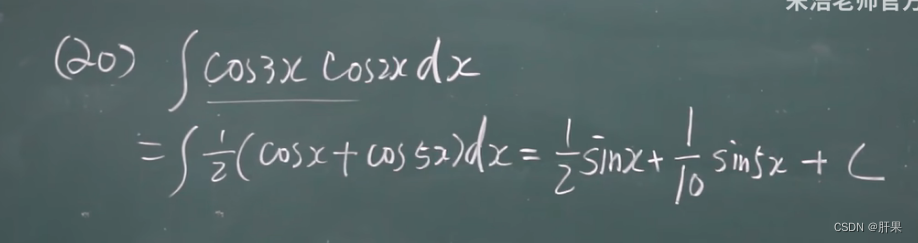 宋浩老师官方
(20) ∫ cos3x cos2x dx
= ∫ 1/2 (cosx + cos5x) dx = 1/2 sinx + 1/10 sin5x + C
CSDN @肝果